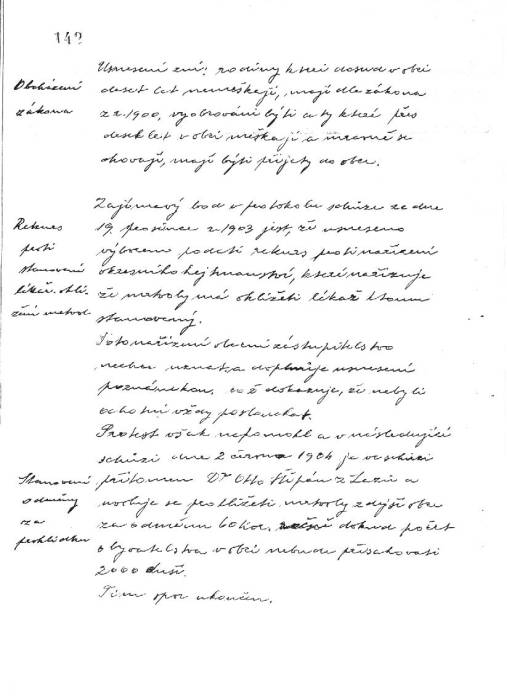 142
Obcházení
zákona
Usnesení zní: rodiny které dosud v obci
deset let nemeškají, mají dle zákona
z r. 1900, vyobcováni býti a ty které přes
deset let v obci meškají a mravně se
chovají, mají býti přijety do obce.
Rekurs
proti
stanovení
lékař. ohli-
žení mrtvol.
Zajímavý bod v protokolu schůze ze dne
19. prosince r. 1903 jest, že usneseno
výborem podati rekurs proti nařízení
okresního hejtmanství, které nařizuje
že mrtvoly má ohlížeti lékař k tomu
stanovený.
Toto nařízení obecní zastupitelstvo
nechce uznat a doplňuje usnesení
poznámkou, což dokazuje, že nebyli
ochotni vždy poslouchat.
Protest však nepomohl a v následující
schůzi dne 2 června 1904 je ve schůzi
Stanovení
odměny
za
prohlídku
přítomen Dr Otto Štěpán z
se prohlížeti mrtvoly zdejší obce
za odměnu 60 kor. ročně dokud počet
obyvatelstva v obci nebude přesahovati
2000 duší.
Tím spor ukončen.